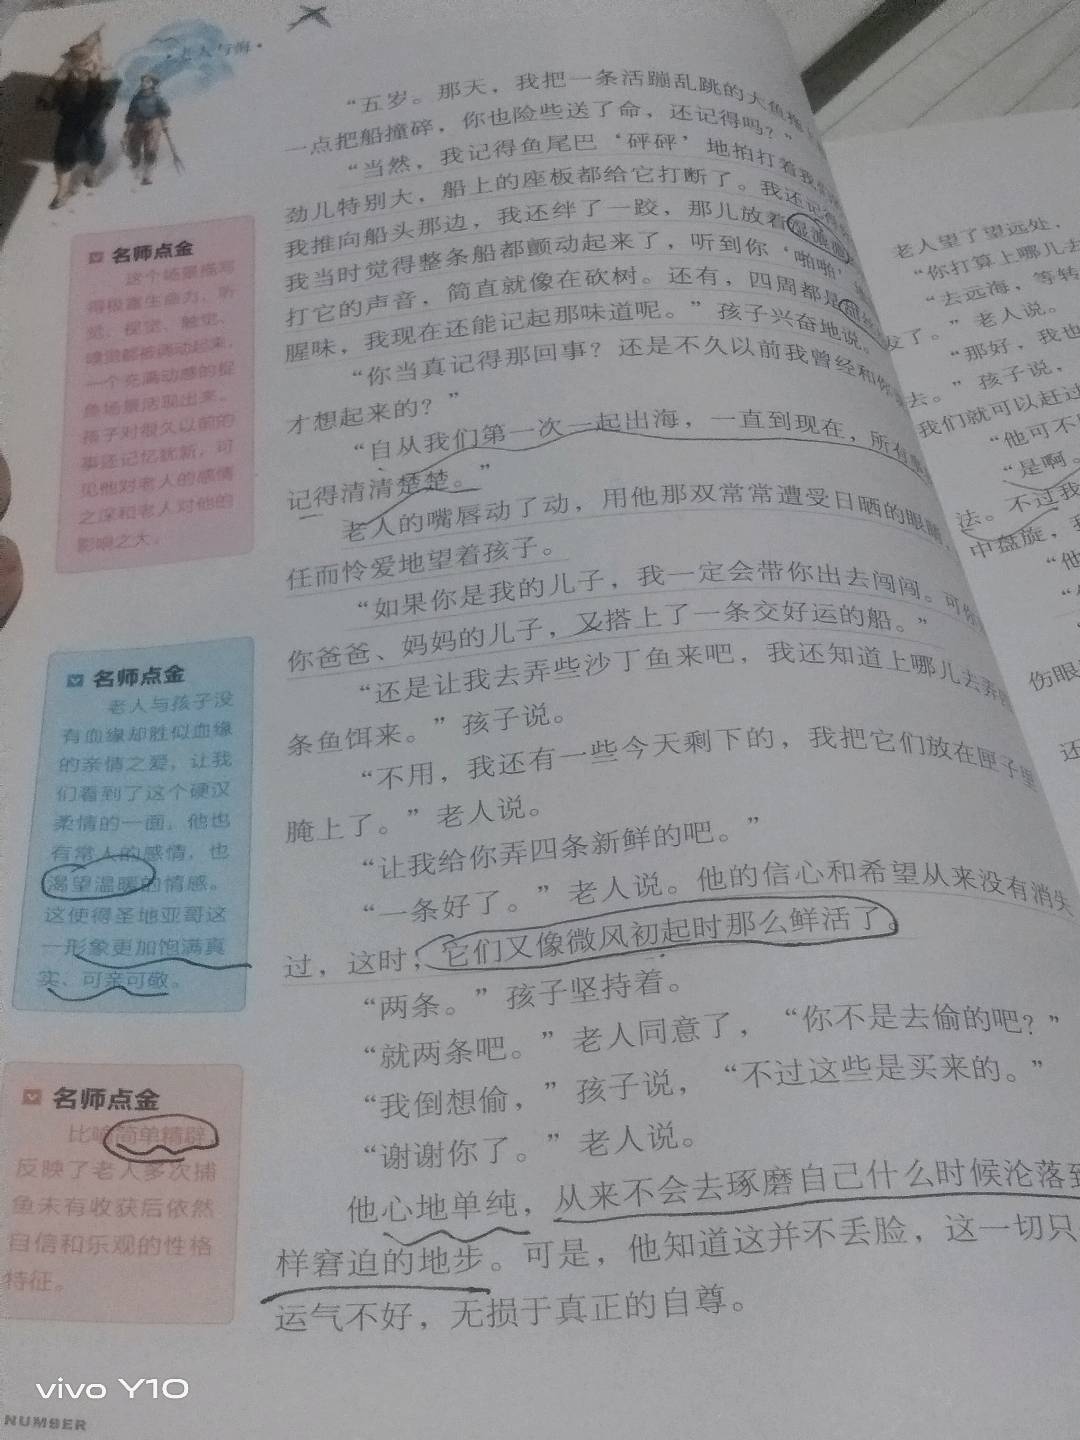 ·老人与海·
“五岁。那天，我把一条活蹦乱跳的大鱼拖
一点把船撞碎，你也险些送了命，还记得吗？”
“当然，我记得鱼尾巴‘砰砰’地拍打着我
劲儿特别大，船上的座板都给它打断了。我还记得
我推向船头那边，我还绊了一跤，那儿放着湿漉漉
我当时觉得整条船都颤动起来了，听到你‘啪啪’
打它的声音，简直就像在砍树。还有，四周都是
腥味，我现在还能记起那味道呢。”孩子兴奋地说。
“你当真记得那回事？还是不久以前我曾经和你
才想起来的？”
“自从我们第一次一起出海，一直到现在，所有
记得清清楚楚。”
老人的嘴唇动了动，用他那双常常遭受日晒的眼睛，
任而怜爱地望着孩子。
“如果你是我的儿子，我一定会带你出去闯闯。可你
你爸爸、妈妈的儿子，又搭上了一条交好运的船。”
“还是让我去弄些沙丁鱼来吧，我还知道上哪儿去弄
条鱼饵来。”孩子说。
“不用，我还有一些今天剩下的，我把它们放在匣子里
腌上了。”老人说。
“让我给你弄四条新鲜的吧。”
“一条好了。”老人说。他的信心和希望从来没有消失
过，这时，它们又像微风初起时那么鲜活了。
“两条。”孩子坚持着。
“就两条吧。”老人同意了，“你不是去偷的吧？”
“我倒想偷，”孩子说，“不过这些是买来的。”
“谢谢你了。”老人说。
他心地单纯，从来不会去琢磨自己什么时候沦落到
样窘迫的地步。可是，他知道这并不丢脸，这一切只
运气不好，无损于真正的自尊。
名师点金
这个场景描写
得极富生命力，听
觉、视觉、触觉、
嗅觉都被调动起来，
一个充满动感的捉
鱼场景活现出来。
孩子对很久以前的
事还记忆犹新，可
见他对老人的感情
之深和老人对他的
影响之大。
名师点金
老人与孩子没
有血缘却胜似血缘
的亲情之爱，让我
们看到了这个硬汉
柔情的一面，他也
有常人的感情，也
渴望温暖的情感。
这使得圣地亚哥这
一形象更加饱满真
实、可亲可敬。
名师点金
比喻简单精辟，
反映了老人多次捕
鱼未有收获后依然
自信和乐观的性格
特征。
老人望了望远处，
“你打算上哪儿去
“去远海，等转
发了。”老人说。
“那好，我也
去。”孩子说，
我们就可以赶过
“他可不
“是啊。
法。不过我
中盘旋，我
“他
伤眼
还
vivo Y10
NUMBER